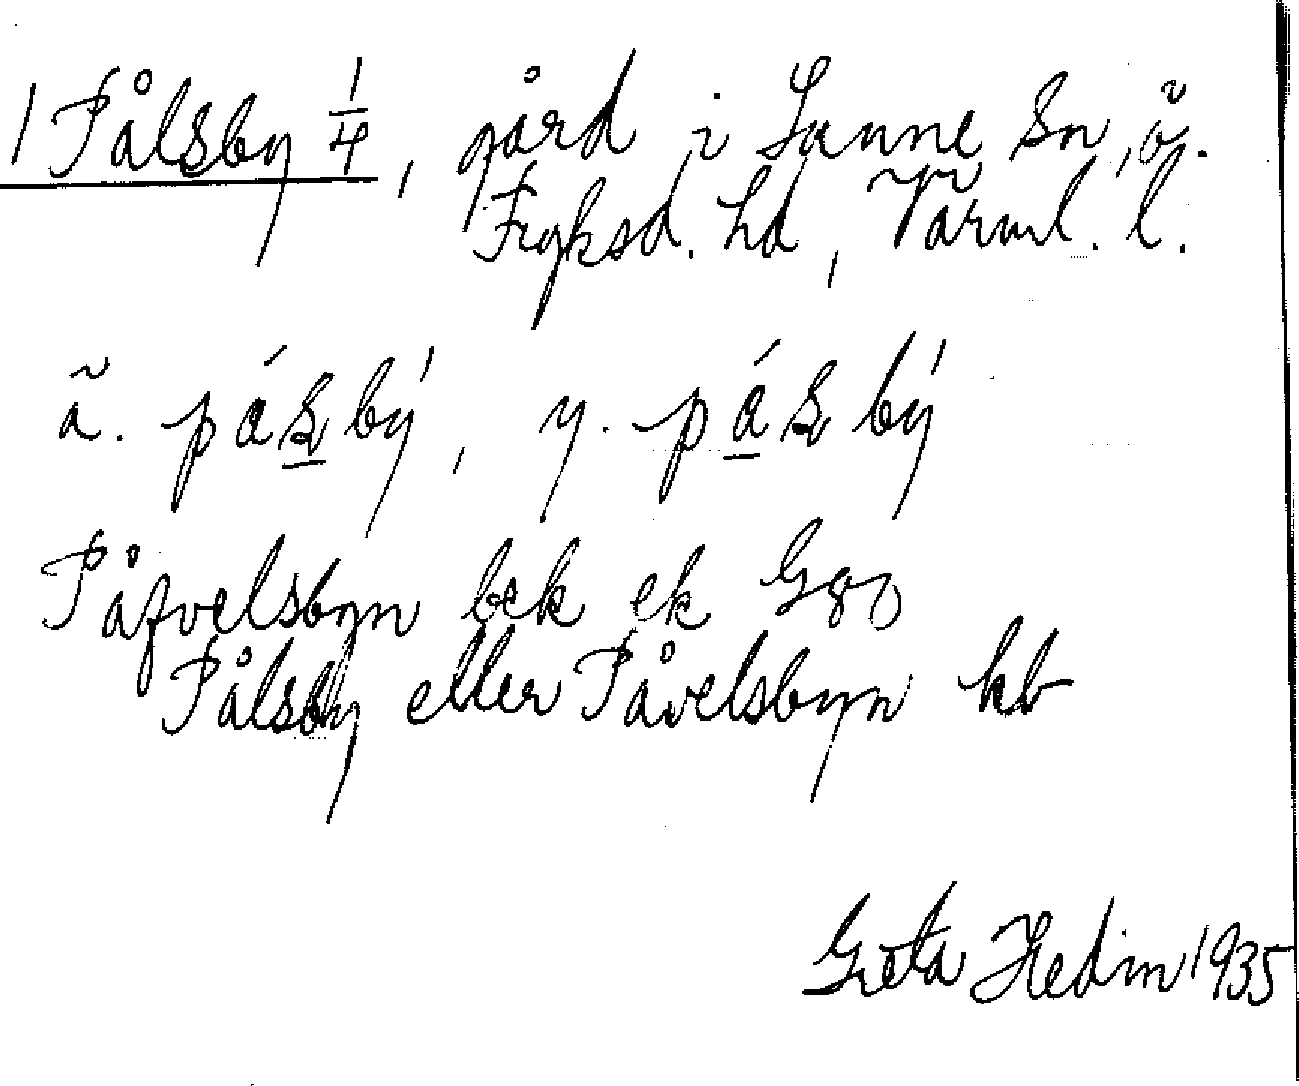 1 Pålsby 1/4, gård i Sunne sn, ö.
Fryksd. hd, Värml. l.
ä. påsbý, y. påsbý
Påfvelsbyn bek ek G80
Pålsby eller Påvelsbyn kb
Greta Hedin 1935